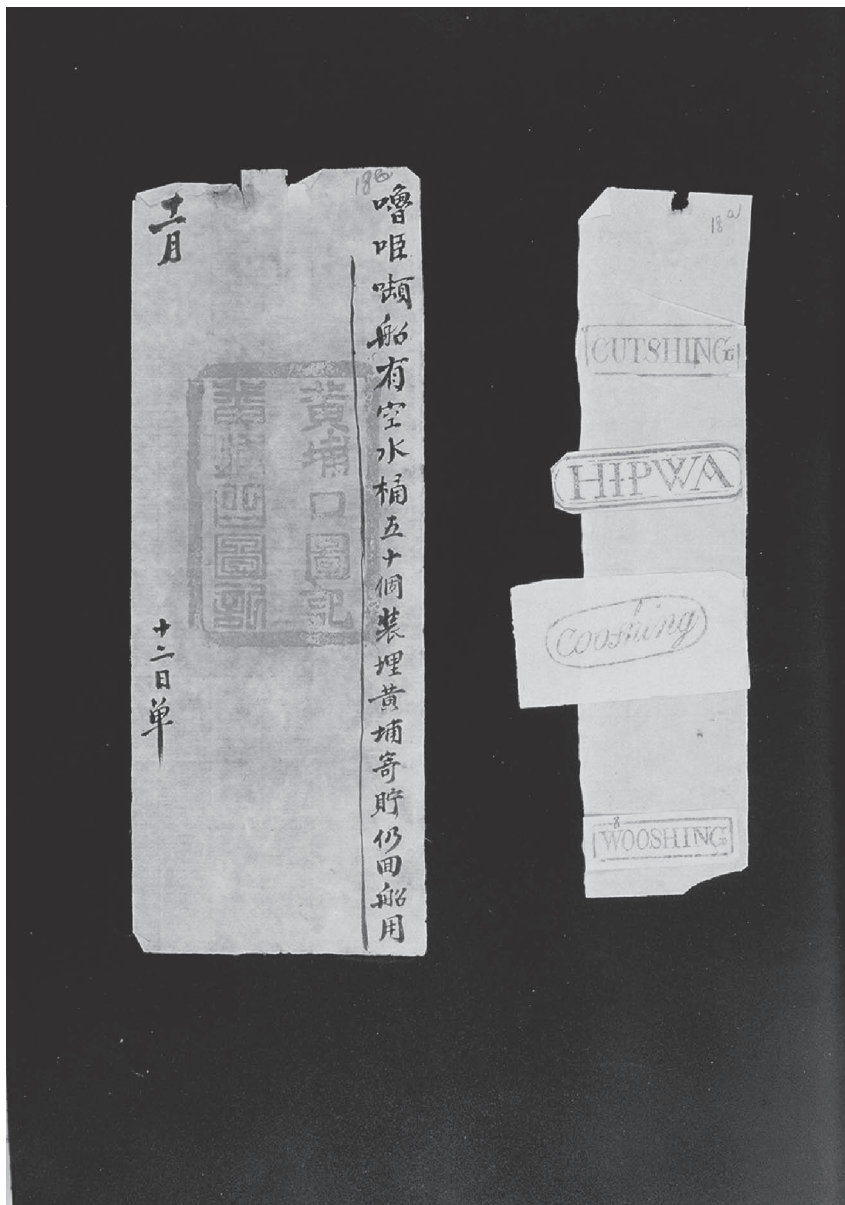 18 a
嚕咺㘔船有空水桶五十個装埋黄埔寄貯仍回船用
黃埔口圖記
十一月
十二日单
18 a
CUTSHING
HIPWA
Cooshing
8
WOOSHING